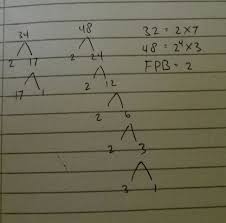 34
2 17
17 1
48
2 24
2 12
2 6
2 3
3 1
32 = 2×7
48 = 2⁴×3
FPB = 2